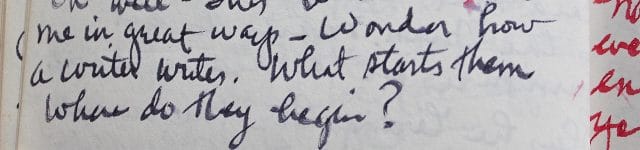 me in great way - Wonder how
a writer writes. What starts them
Where do they begin?